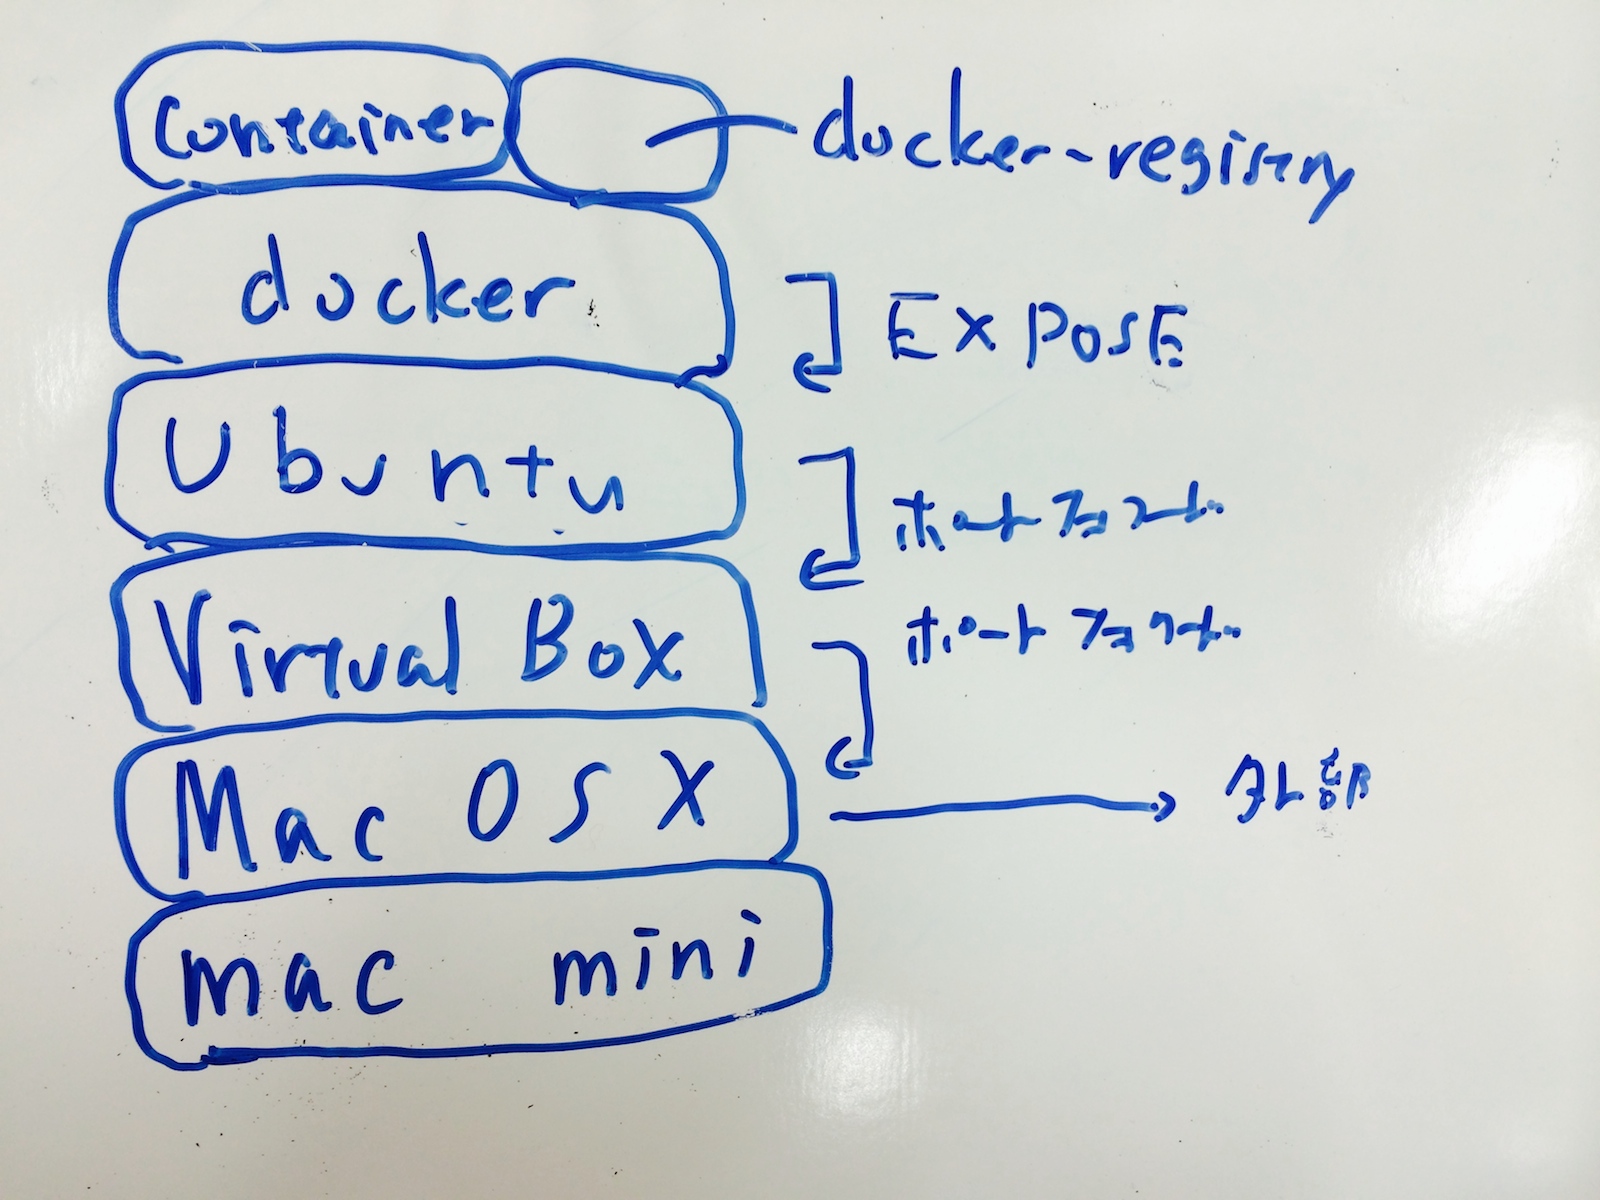 container
docker-registry
docker
EXPOSE
Ubuntu
ポートフォワード
Virtual Box
ポートフォワード
Mac OS X
外部
mac mini